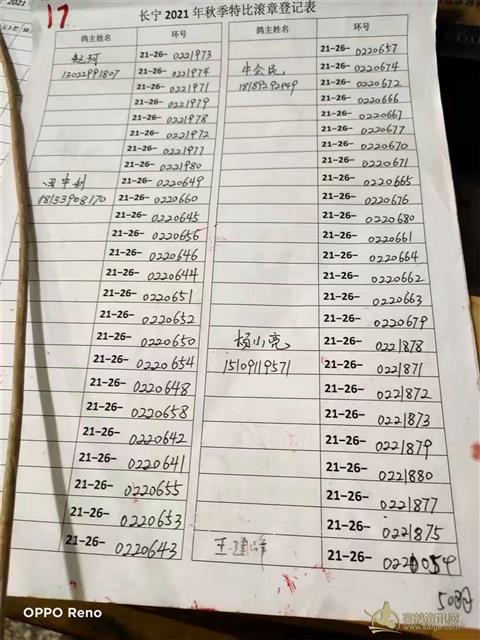 17
长宁 2021 年秋季特比滚章登记表
鸽主姓名 环号 鸽主姓名 环号
赵珂 21-26-0221973
13022991807 21-26-0221974
21-26-0221971
21-26-0221979
21-26-0221978
21-26-0221972
21-26-0221977
21-26-0221980
21-26-0220649
18133908170 21-26-0220660
21-26-0220645
21-26-0220656
21-26-0220646
21-26-0220644
21-26-0220651
21-26-0220652
21-26-0220650
21-26-0220654
21-26-0220648
21-26-0220658
21-26-0220642
21-26-0220641
21-26-0220655
21-26-0220653
21-26-0220643
21-26-0220657
牛会民 21-26-0220674
18189292949 21-26-0220672
21-26-0220666
21-26-0220667
21-26-0220677
21-26-0220670
21-26-0220671
21-26-0220665
21-26-0220676
21-26-0220680
21-26-0220661
21-26-0220664
21-26-0220662
21-26-0220663
21-26-0220679
杨小亮 21-26-0221878
15109119571 21-26-0221871
21-26-0221872
21-26-0221873
21-26-0221879
21-26-0221880
21-26-0221877
21-26-0221875
王建祥 21-26-
OPPO Reno
赛鸽资讯网